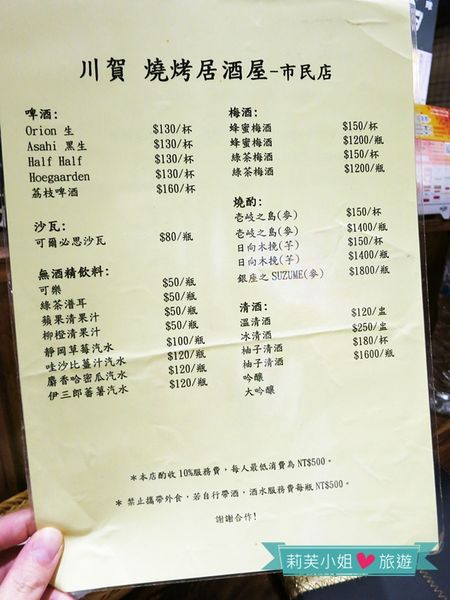 川賀 燒烤居酒屋-市民店
啤酒:
Orion 生 $130/杯
Asahi 黑生 $130/杯
Half Half $130/杯
Hoegaarden $130/杯
荔枝啤酒 $160/杯
沙瓦:
可爾必思沙瓦 $80/瓶
無酒精飲料:
可樂 $50/瓶
綠茶潽耳 $50/瓶
蘋果清果汁 $50/瓶
柳橙清果汁 $50/瓶
靜岡草莓汽水 $100/瓶
哇沙比薑汁汽水 $120/瓶
麝香哈密瓜汽水 $120/瓶
伊三郎蕃薯汽水 $120/瓶
梅酒:
蜂蜜梅酒 $150/杯
蜂蜜梅酒 $1200/瓶
綠茶梅酒 $150/杯
綠茶梅酒 $1200/瓶
燒酌:
壱岐之島(麥) $150/杯
壱岐之島(麥) $1400/瓶
日向木挽(芋) $150/杯
日向木挽(芋) $1400/瓶
銀座之 SUZUME(麥) $1800/瓶
清酒:
溫清酒 $120/盅
冰清酒 $250/盅
柚子清酒 $180/杯
柚子清酒 $1600/瓶
吟釀
大吟釀
*本店酌收 10%服務費，每人最低消費為 NT$500。
* 禁止攜帶外食，若自行帶酒，酒水服務費每瓶 NT$500。
謝謝合作!
莉芙小姐❤旅遊